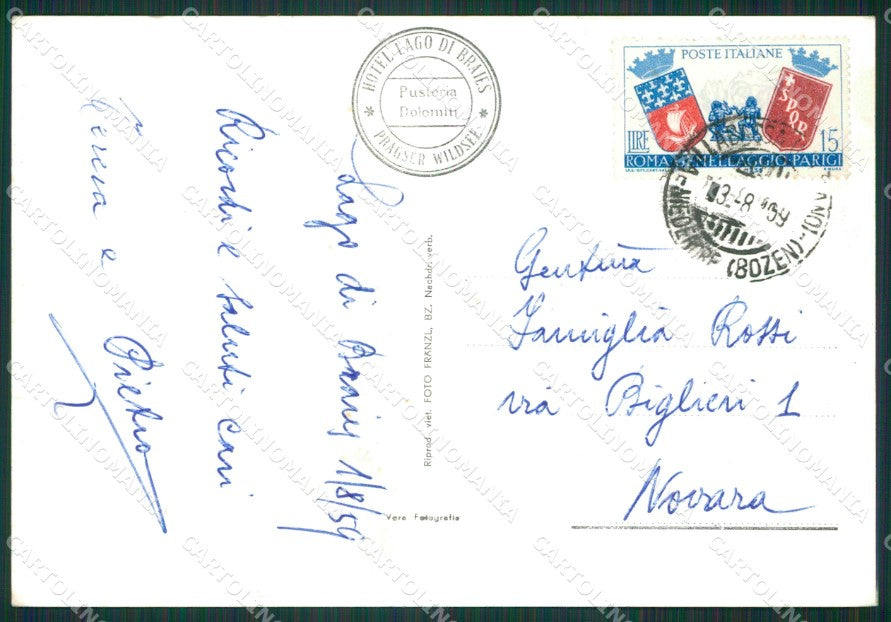 HOTEL LAGO DI BRAIES
Pusteria
Dolomiti
* PRAGSER WILDSEE *
Lago di Braies 1/8/59
Ricordi e saluti cari
Teresa e
Pietro
Riprod. viet. FOTO FRANZL, BZ. Nachdr. verb.
Vera Fotografia
POSTE ITALIANE
SPQR
LIRE 15
ROMA GEMELLAGGIO PARIGI
3.-8.59
(BOZEN)
Gent.ma
Famiglia Rossi
via Biglieri 1
Novara
CARTOLINOMANIA